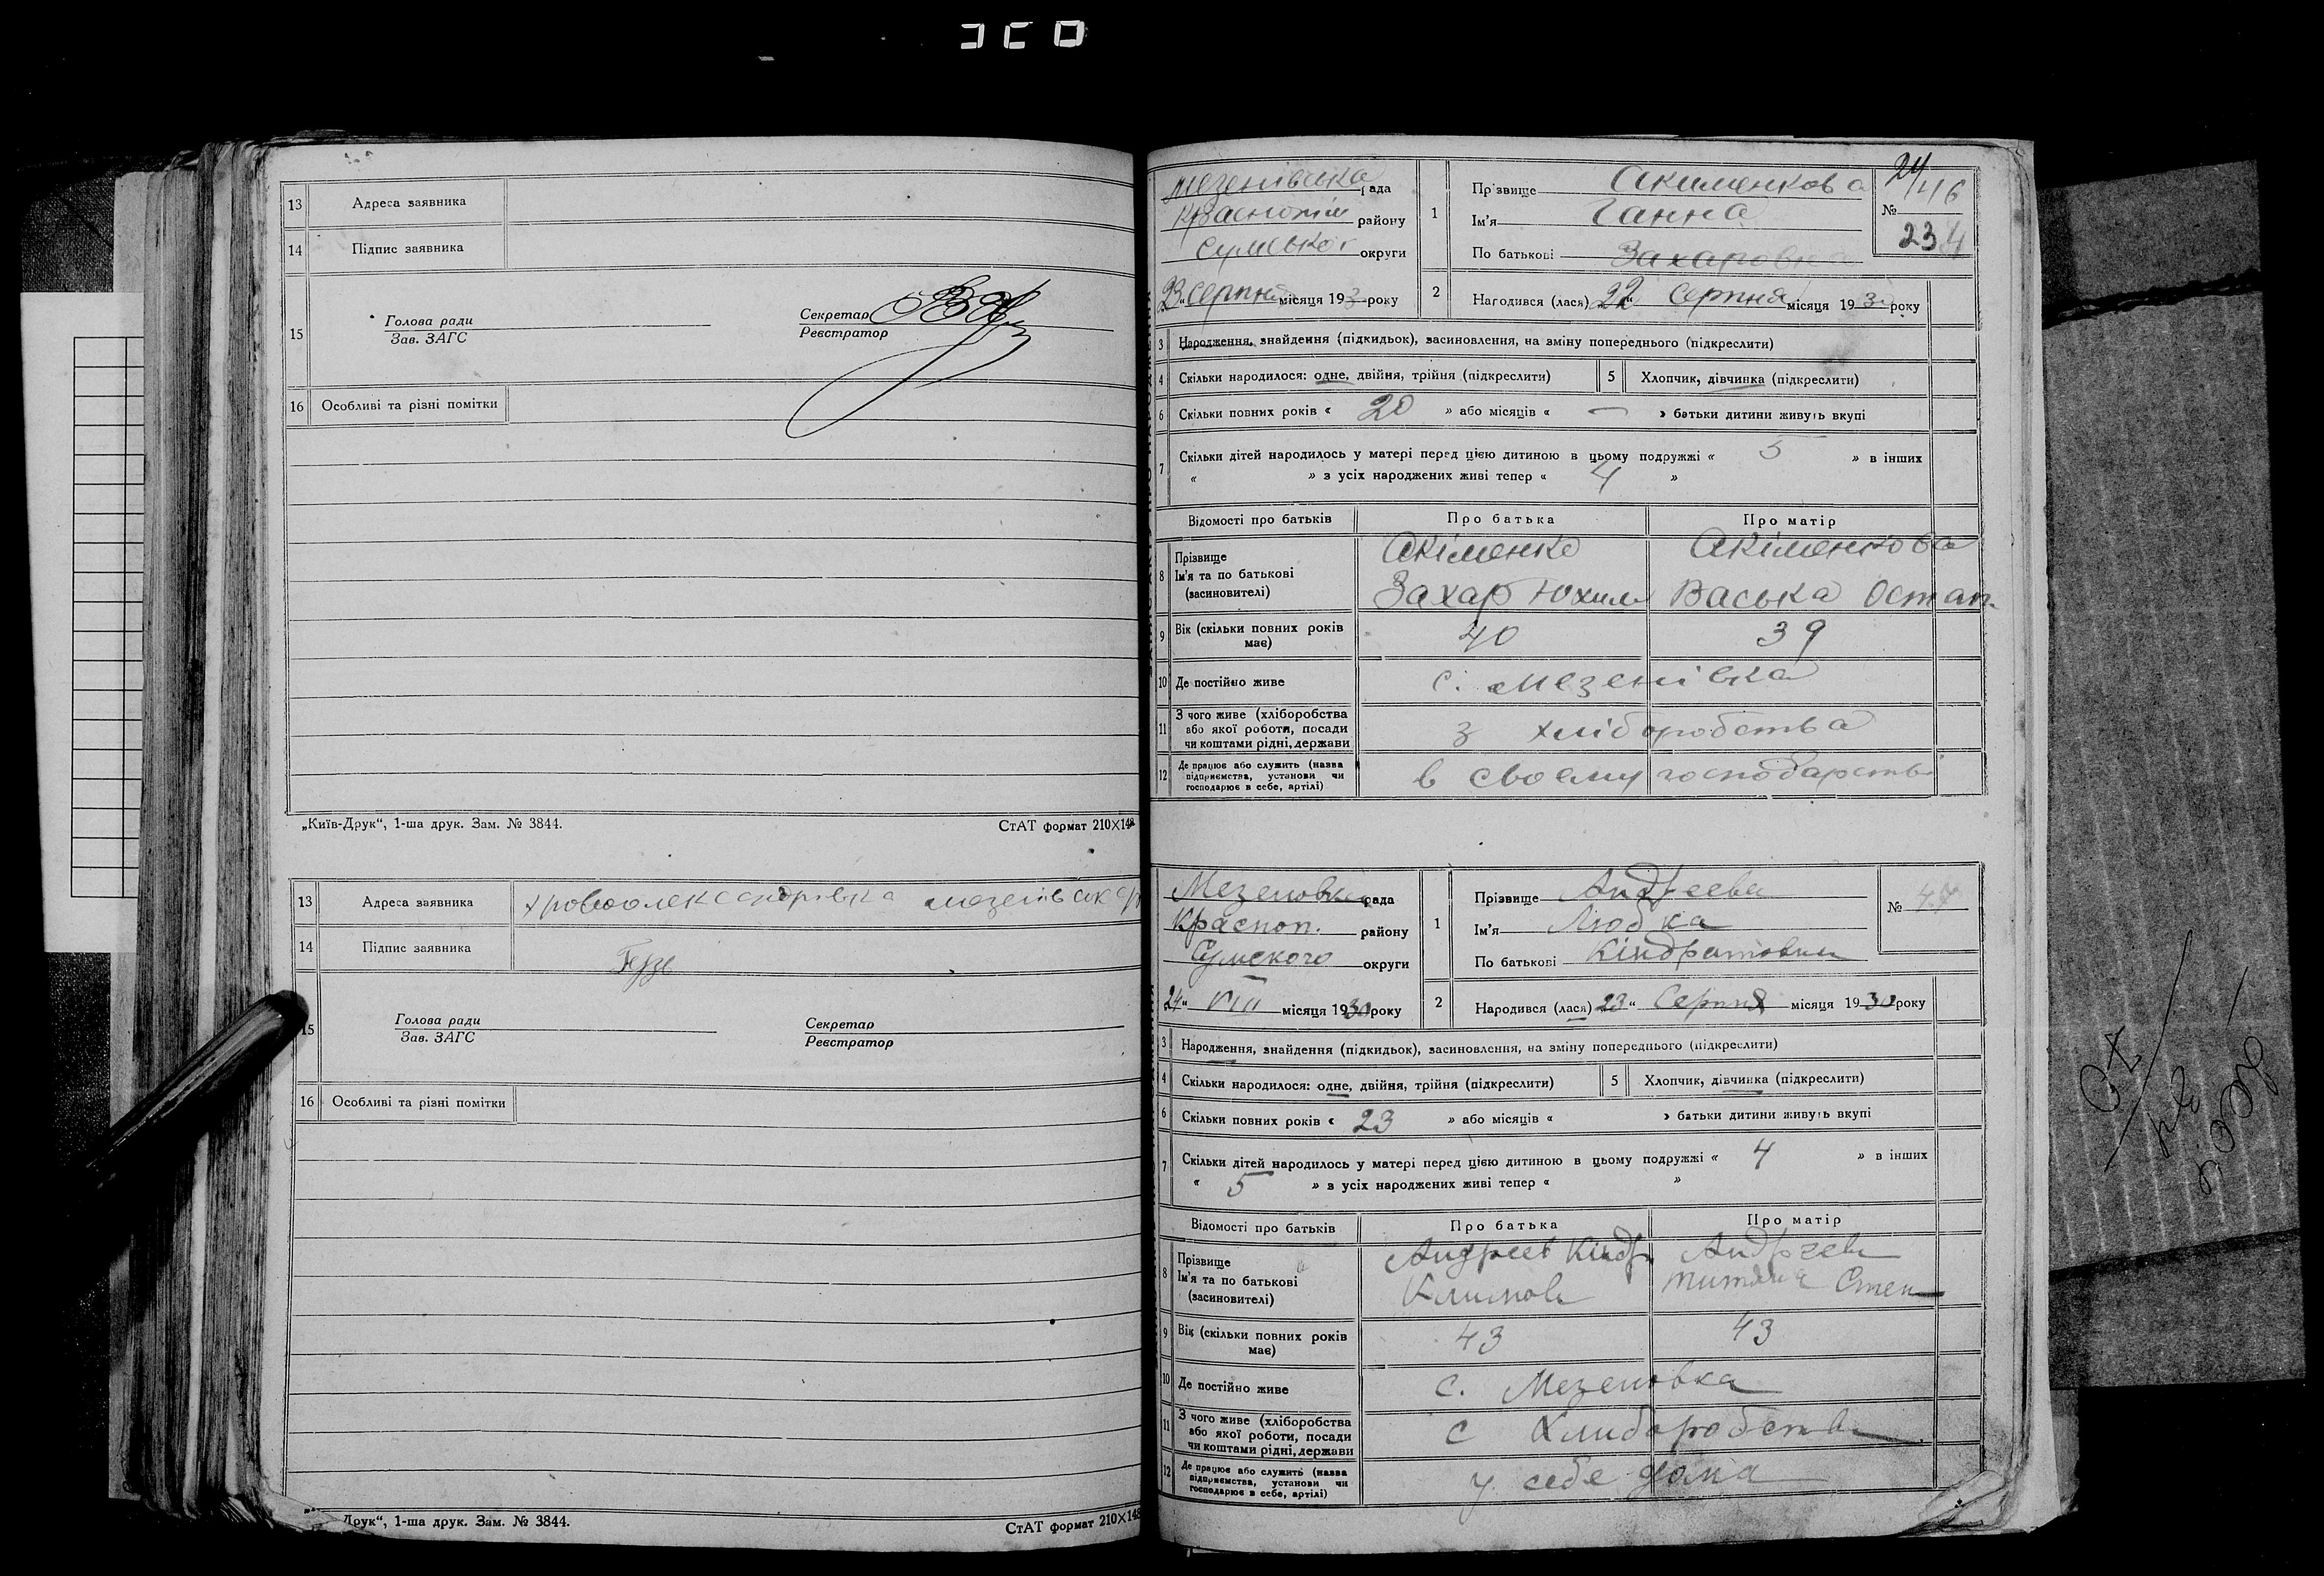 13 Адреса заявника
14 Підпис заявника
15 Голова ради
Зав. ЗАГС
Секретар
Реєстратор
16 Особливі та різні помітки
„Київ-Друк“, 1-ша друк. Зам. № 3844.
СтАТ формат 210×148
13 Адреса заявника
14 Підпис заявника
15 Голова ради
Зав. ЗАГС
Секретар
Реєстратор
16 Особливі та різні помітки
Друк“, 1-ша друк. Зам. № 3844.
СтАТ формат 210×148
Мезенівська рада
Краснопіл району
Сумської округи
23 „ Серпня місяця 193 року
1 Прізвище Акименкова
Ім'я Ганна
По батькові Захаровна
24/46
№
234
2 Народився (лася) 22 „ Серпня місяця 193 року
3 Народження, знайдення (підкидьок), засиновлення, на зміну попереднього (підкреслити)
4 Скільки народилося: одне, двійня, трійня (підкреслити)
5 Хлопчик, дівчинка (підкреслити)
6 Скільки повних років « 20 » або місяців « — » батьки дитини живуть вкупі
7 Скільки дітей народилось у матері перед цією дитиною в цьому подружжі « 5 » в інших
« » з усіх народжених живі тепер « 4 »
Відомості про батьків Про батька Про матір
8 Прізвище
Ім'я та по батькові
(засиновителі)
Акіменко Акіменкова
Захар Юхим Васька Остап.
9 Вік (скільки повних років має) 40 39
10 Де постійно живе с. Мезенівка
11 З чого живе (хліборобства
або якої роботи, посади
чи коштами рідні, держави
з хліборобства
12 Де працює або служить (назва
підприємства, установи чи
господарює в себе, артілі)
в своему господарстві
Мезеновка рада
Краспоп. району
Сумского округи
24 „ VIII місяця 1930 року
1 Прізвище Андреева
Ім'я Любка
По батькові Кіндратовна
№ 47
2 Народився (лася) 23 „ Серпня місяця 1930 року
3 Народження, знайдення (підкидьок), засиновлення, на зміну попереднього (підкреслити)
4 Скільки народилося: одне, двійня, трійня (підкреслити)
5 Хлопчик, дівчинка (підкреслити)
6 Скільки повних років « 23 » або місяців « » батьки дитини живуть вкупі
7 Скільки дітей народилось у матері перед цією дитиною в цьому подружжі « 4 » в інших
« 5 » з усіх народжених живі тепер « »
Відомості про батьків Про батька Про матір
8 Прізвище
Ім'я та по батькові
(засиновителі)
Андреев Кіндр. Андреева
Климов Степ
9 Вік (скільки повних років має) 43 43
10 Де постійно живе с. Мезеновка
11 З чого живе (хліборобства
або якої роботи, посади
чи коштами рідні, держави
с Хлиборобства
12 Де працює або служить (назва
підприємства, установи чи
господарює в себе, артілі)
у себе дома